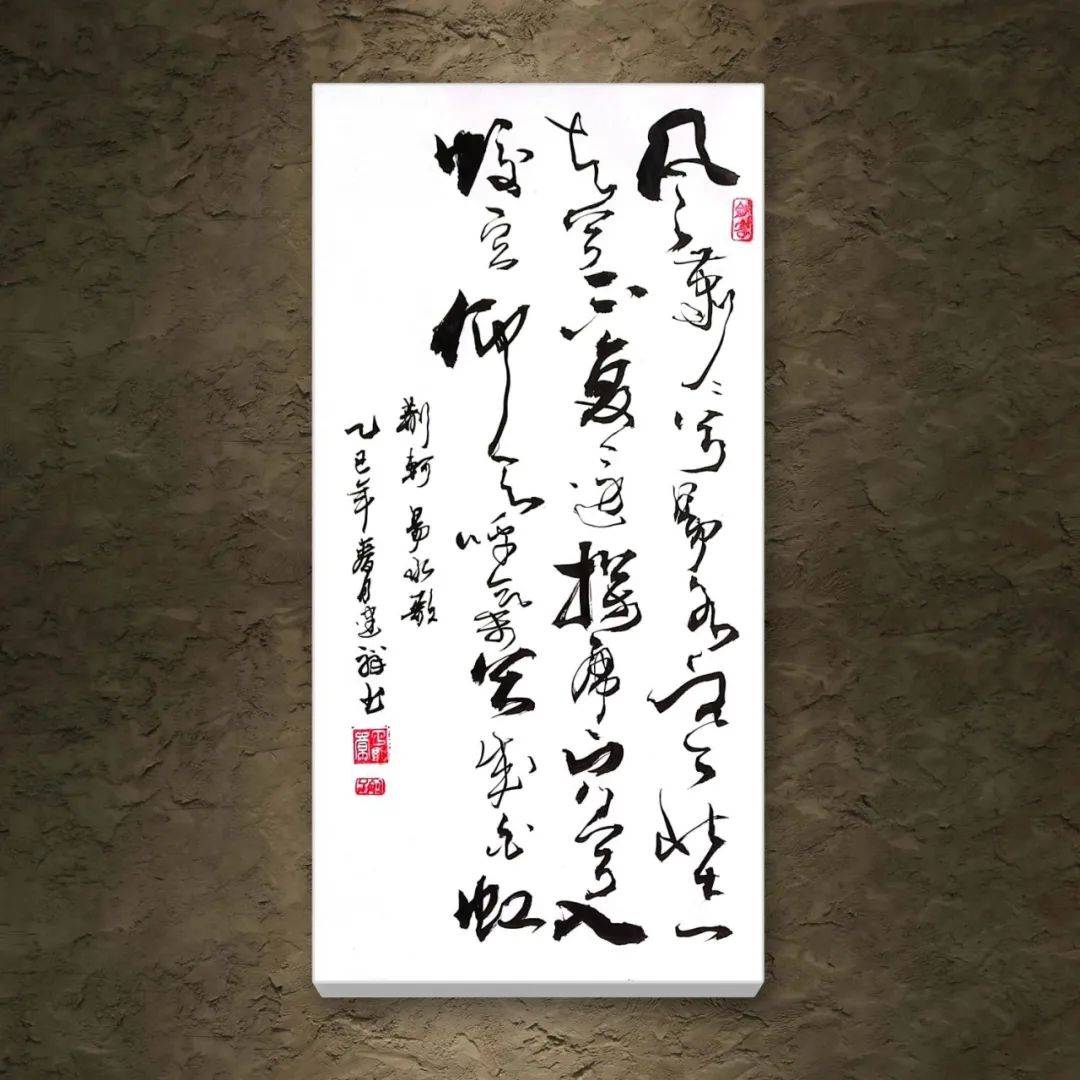 风萧萧兮易水寒壮士一
去兮不复还探虎穴兮入
蛟宫仰天呼氣兮成白虹
荆轲易水歌
乙巳年春月建祥书